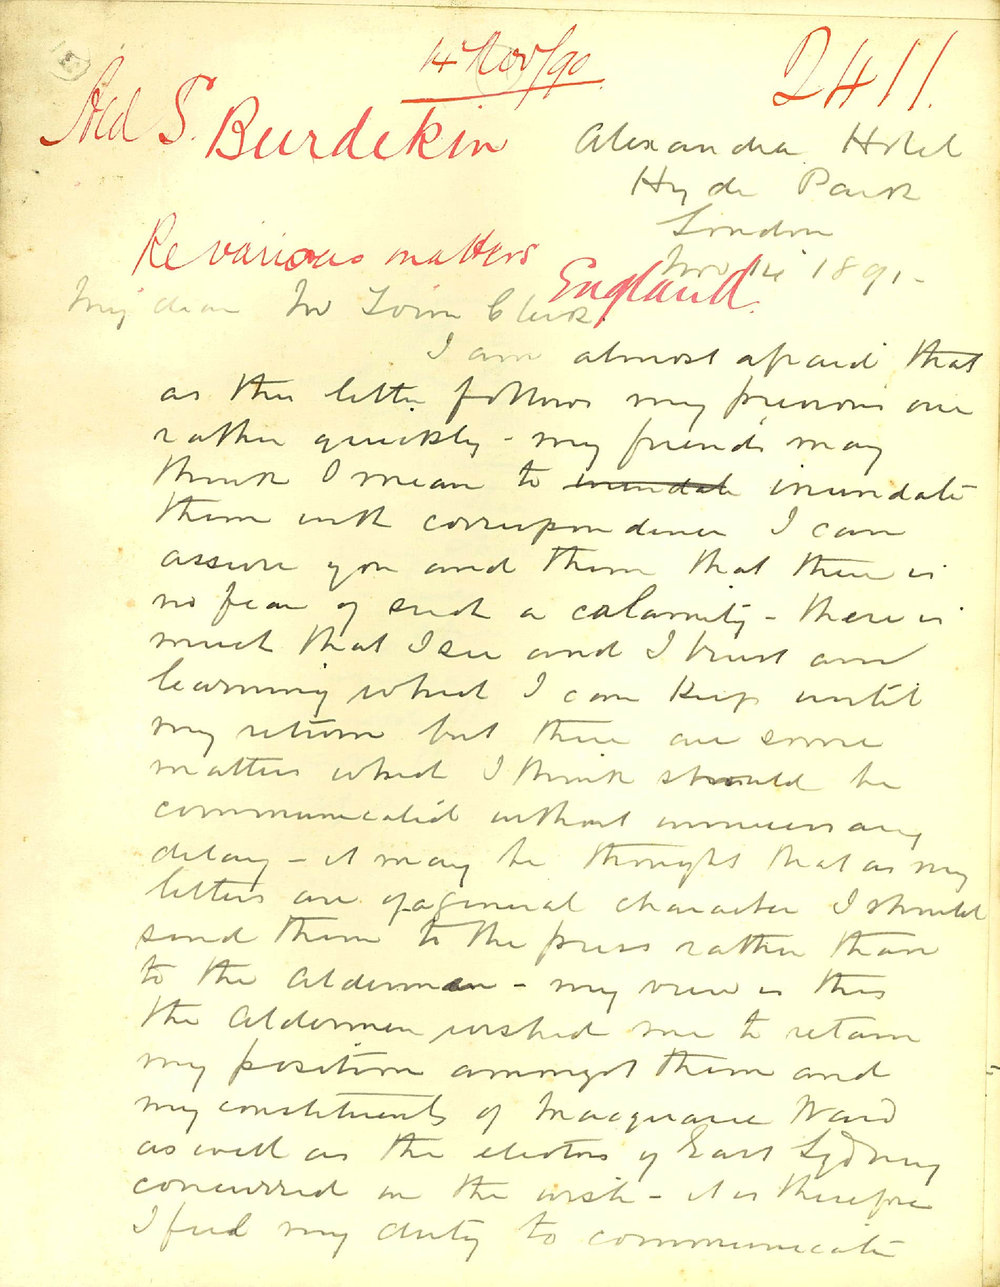 14 Nov/90
2411.
Ald S. Burdekin
Alexandra Hotel
Hyde Park
London
Nov 14 1891-
Re various matters
England.
My dear Mr Town Clerk.
I am almost afraid that
as this letter follows my previous one
rather quickly - my friends may
think I mean to inundate inundate
them with correspondence I can
assure you and them that there is
no fear of such a calamity - there is
much that I see and I trust am
learning which I can keep until
my return but there are some
matters which I think should be
communicated without unnecessary
delay - it may be thought that as my
letters are of a general character I should
send them to the press rather than
to the Aldermen - my view is this
the Aldermen wished me to retain
my position amongst them and
my constituents of Macquarie Ward
as well as the electors of East Sydney
concurred in the wish - it is therefore
I feel my duty to communicate